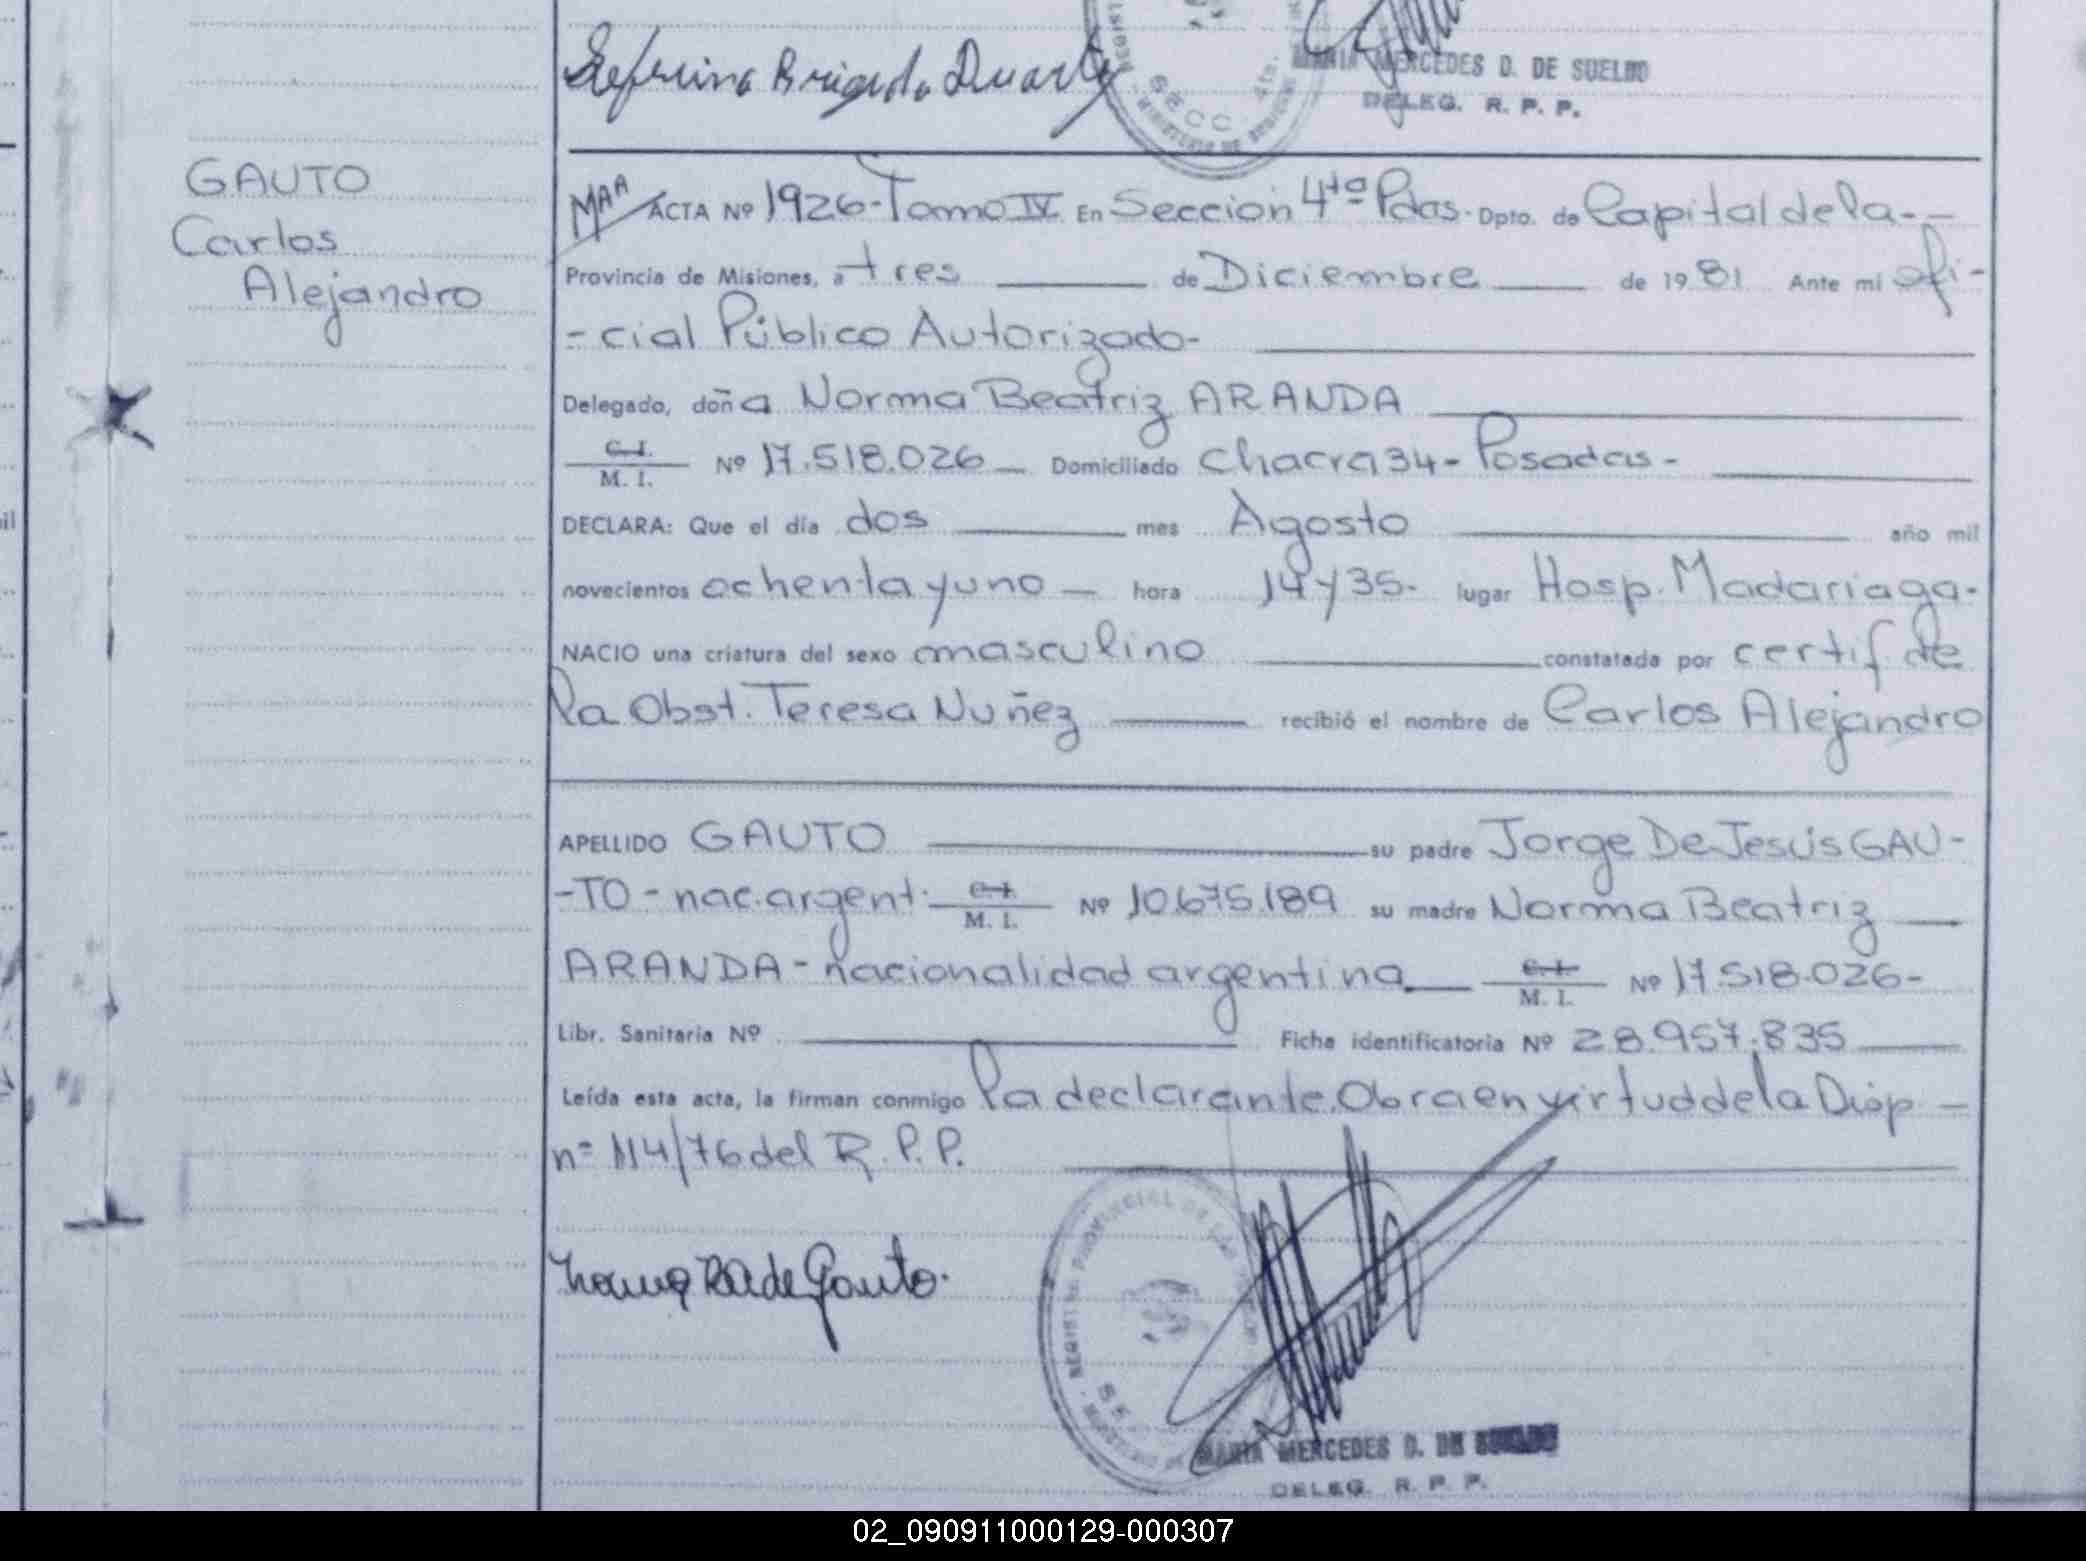 Duarte
MARIA MERCEDES D. DE SUELDO
DELEG. R. P. P.
GAUTO
Carlos
Alejandro
ACTA Nº 1926-Tomo IV En Sección 4ta Pdas. Dpto. de Capital de la--
Provincia de Misiones, a tres de Diciembre de 1981 Ante mi ofi-
-cial Público Autorizado-
Delegado, doña Norma Beatriz ARANDA
C. I. / M. I. Nº 17.518.026 Domiciliado Chacra 34-Posadas-
DECLARA: Que el día dos mes Agosto año mil
novecientos ochenta y uno hora 14 y 35- lugar Hosp. Madariaga-
NACIO una criatura del sexo masculino constatada por certif. de
la Obst. Teresa Nuñez recibió el nombre de Carlos Alejandro
APELLIDO GAUTO su padre Jorge De Jesús GAU-
-TO-nac. argent. C. I. / M. I. Nº 10.675.189 su madre Norma Beatriz
ARANDA-nacionalidad argentina C. I. / M. I. Nº 17.518.026-
Libr. Sanitaria Nº Ficha identificatoria Nº 28.957.835
Leída esta acta, la firman conmigo la declarante. Obra en virtud de la Disp
nº 114/76 del R.P.P.
de Gauto.
REGISTRO PROVINCIAL DE LAS
MARIA MERCEDES D. DE SUELDO
DELEG. R. P. P.
02_090911000129-000307